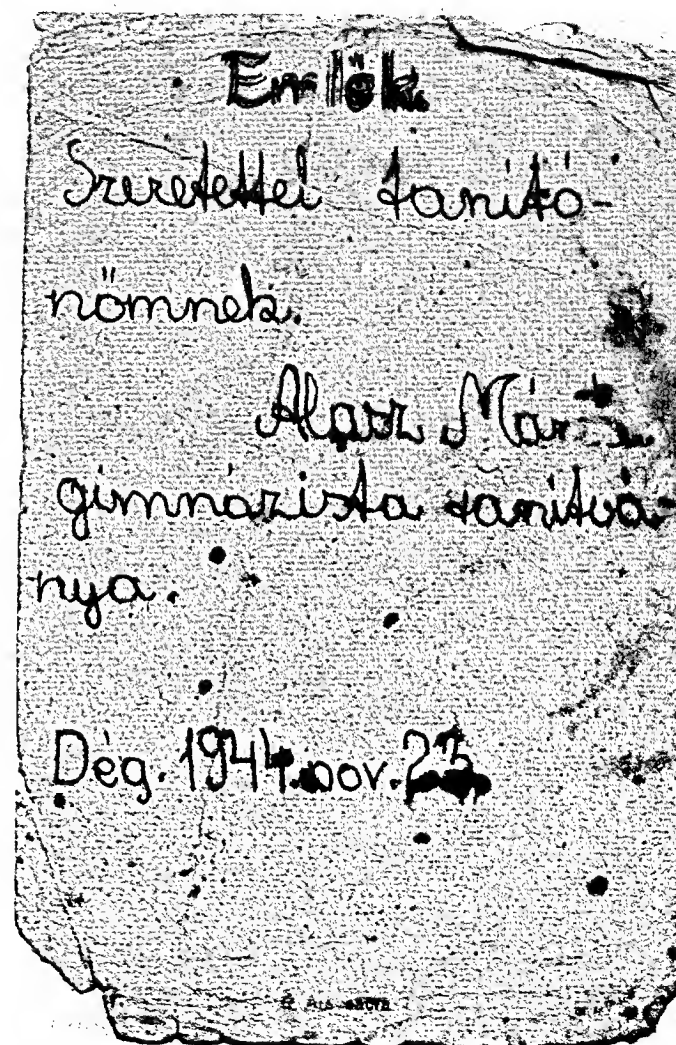 Emlék
Szeretettel tanító-
nőmnek.
Alasz Márta
gimnázista tanítvá-
nya.
Dég. 1944. nov. 23
Ars sacra